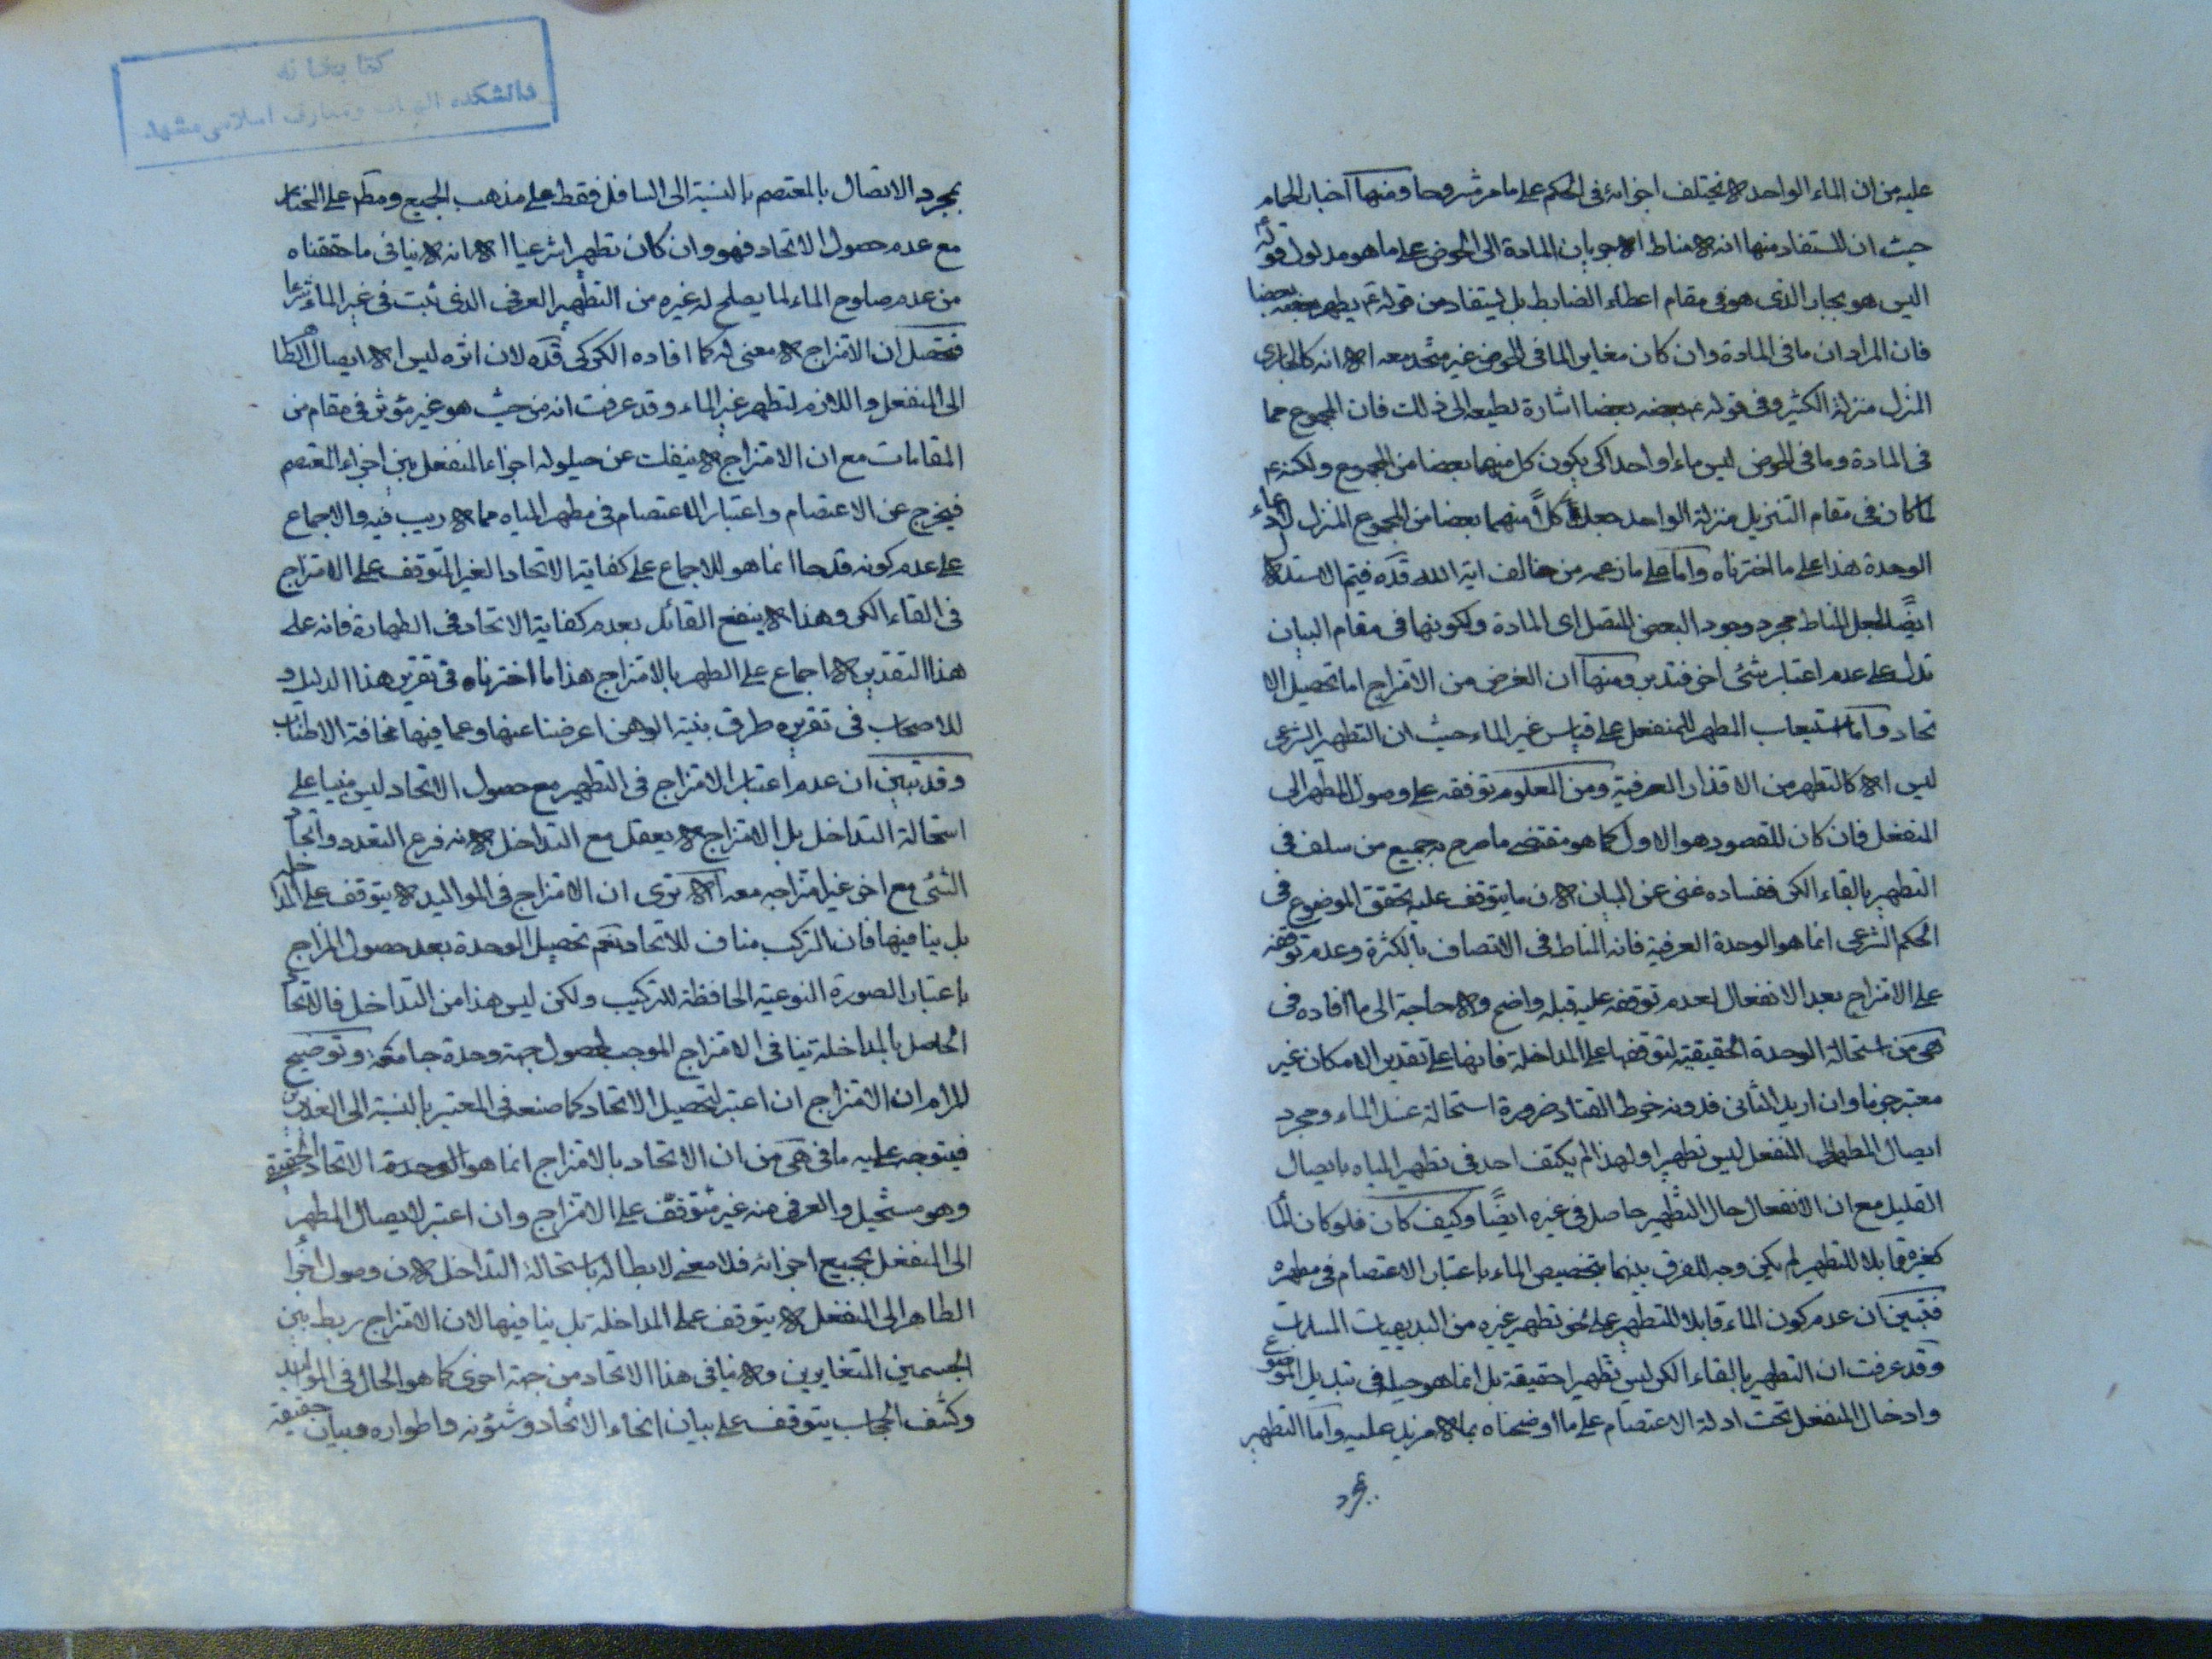 عليه من ان الماء الواحد لا يختلف اجزائه فى الحكم على ما مر مشروحا ومنها اخبار الحمام
حيث ان المستفاد منها انه لا مناط الا جريان المادة الى الحوض على ما هو مدلول قوله
اليس هو بجار الذى هو فى مقام اعطاء الضابط بل يستفاد من قوله ع يطهر بعضه بعضا
فان المراد ان ما فى المادة وان كان مغاير الما فى الحوض غير متحد معه الا انه كالجارى
المنزل منزلة الكثير وفى قوله ع بعضه بعضا اشارة لطيفه الى ذلك فان المجموع مما
فى المادة وما فى الحوض ليس ماءا واحدا كى يكون كل منهما بعضا من المجموع ولكنه ع
لما كان فى مقام التنزيل منزلة الواحد جعل كلاً منهما بعضا من المجموع المنزل ادعاء
الوحدة هذا على ما اخترناه واما على ما زعمه من خالف اية الله قده فيتم الاستدلال
ايضًا لجعل المناط مجرد وجود البعض المتصل اى المادة ولكونها فى مقام البيان
تدل على عدم اعتبار شئ اخر فتدبر ومنها ان الغرض من الامتزاج اما تحصيل الا
تحاد واما استيعاب المطهر للمنفعل على قياس غير الماء حيث ان التطهير الشرعى
ليس الا كالتطهر من الاقذار العرفية ومن المعلوم توقفه على وصول المطهر الى
المنفعل فان كان المقصود هو الاول كما هو مقتضى ما صرح به جميع من سلف فى
التطهير بالقاء الكر ففساده غنى عن البيان لان ما يتوقف عليه تحقق الموضوع فى
الحكم الشرعى انما هو الوحدة العرفية فانه المناط فى الاتصاف بالكثرة وعدم توقفه
على الامتزاج بعد الانفعال لعدم توقفه عليه قبله واضح ولا حاجة الى ما افاده فى
هى من استحالة الوحدة الحقيقية لتوقفها على المداخلة فانها على تقدير الامكان غير
معتبر جزما وان اريد الثانى فدونه خرط القتاد ضرورة استحالة غسل الماء ومجرد
ايصال المطهر الى المنفعل ليس تطهيرا ولهذا لم يكتف احد فى تطهير المياه بايصال
القليل مع ان الانفعال حال التطهير حاصل فى غيره ايضًا وكيف كان فلو كان الماء
كغيره قابلا للتطهير لم يكن وجه للفرق بينهما بتخصيص الماء باعتبار الاعتصام فى مطهره
فتبين ان عدم كون الماء قابلا للتطهير على نحو تطهير غيره من البديهيات المسلمات
وقد عرفت ان التطهير بالقاء الكر ليس تطهيرا حقيقة بل انما هو حيلة فى تبديل الموضوع
وادخال المنفعل تحت ادلة الاعتصام على ما اوضحناه بما لا مزيد عليه واما التطهير
كتابخانه
دانشكده الهيات ومعارف اسلامى مشهد
بمجرد الاتصال بالمعتصم بالنسبة الى السافل فقط على مذهب الجميع ومطم على المختار
مع عدم حصول الاتحاد فهو وان كان تطهيرا شرعيا الا انه لا ينافى ما حققناه
من عدم صلوح الماء لما يصلح له غيره من التطهير العرفى الذى ثبت فى غير الماء شرعا
فتحصل ان الامتزاج لا معنى له كما افاده الكركى قده لان اثره ليس الا ايصال الطاهر
الى المنفعل واللازم لتطهر غير الماء وقد عرفت انه من حيث هو غير مؤثر فى مقام من
المقامات مع ان الامتزاج لا ينفك عن حيلولة اجزاء المنفعل بين اجزاء المعتصم
فيخرج عن الاعتصام واعتبار الاعتصام فى مطهر المياه مما لا ريب فيه والاجماع
على عدم كونه قدحا انما هو للاجماع على كفاية الاتحاد الغير المتوقف على الامتزاج
فى القاء الكر وهذا لا ينفع القائل بعدم كفاية الاتحاد فى الطهارة فانه على
هذا التقدير لا اجماع على الطهر بالامتزاج هذا ما اخترناه فى تقرير هذا الدليل و
للاصحاب فى تقريره طرق بينة الوهن اعرضنا عنها وعما فيها مخافة الاطناب
وقد تبين ان عدم اعتبار الامتزاج فى التطهير مع حصول الاتحاد ليس مبنيا على
استحالة التداخل بل الامتزاج لا يعقل مع التداخل لانه فرع التعدد واتحاد
الشئ مع اخر غير امتزاجه معه الا ترى ان الامتزاج فى المواليد لا يتوقف على المداخلة
بل ينافيها فان التركب مناف للاتحاد نعم تحصيل الوحدة بعد حصول المزاج
باعتبار الصورة النوعية الحافظة للتركيب ولكن ليس هذا من التداخل فالاتحاد
الحاصل بالمداخلة ينافى الامتزاج الموجب لحصول جهة وحدة جامعة وتوضيح
المرام ان الامتزاج ان اعتبر لتحصيل الاتحاد كما صنعه فى المعتبر بالنسبة الى الغديرين
فيتوجه عليه ما فى هى من ان الاتحاد بالامتزاج انما هو الوحدة الاتحاد الحقيقى
وهو مستحيل والعرفى منه غير متوقف على الامتزاج وان اعتبر لايصال المطهر
الى المنفعل بجميع اجزائه فلا معنى لابطاله باستحالة التداخل لان وصول اجزاء
الطاهر الى المنفعل لا يتوقف على المداخلة بل ينافيها لان الامتزاج ربط بين
الجسمين المتغايرين ولا ينافى هذا الاتحاد من جهة اخرى كما هو الحال فى المواليد
وكشف الحجاب يتوقف على بيان انحاء الاتحاد وشئونه واطواره وبيان حقيقة